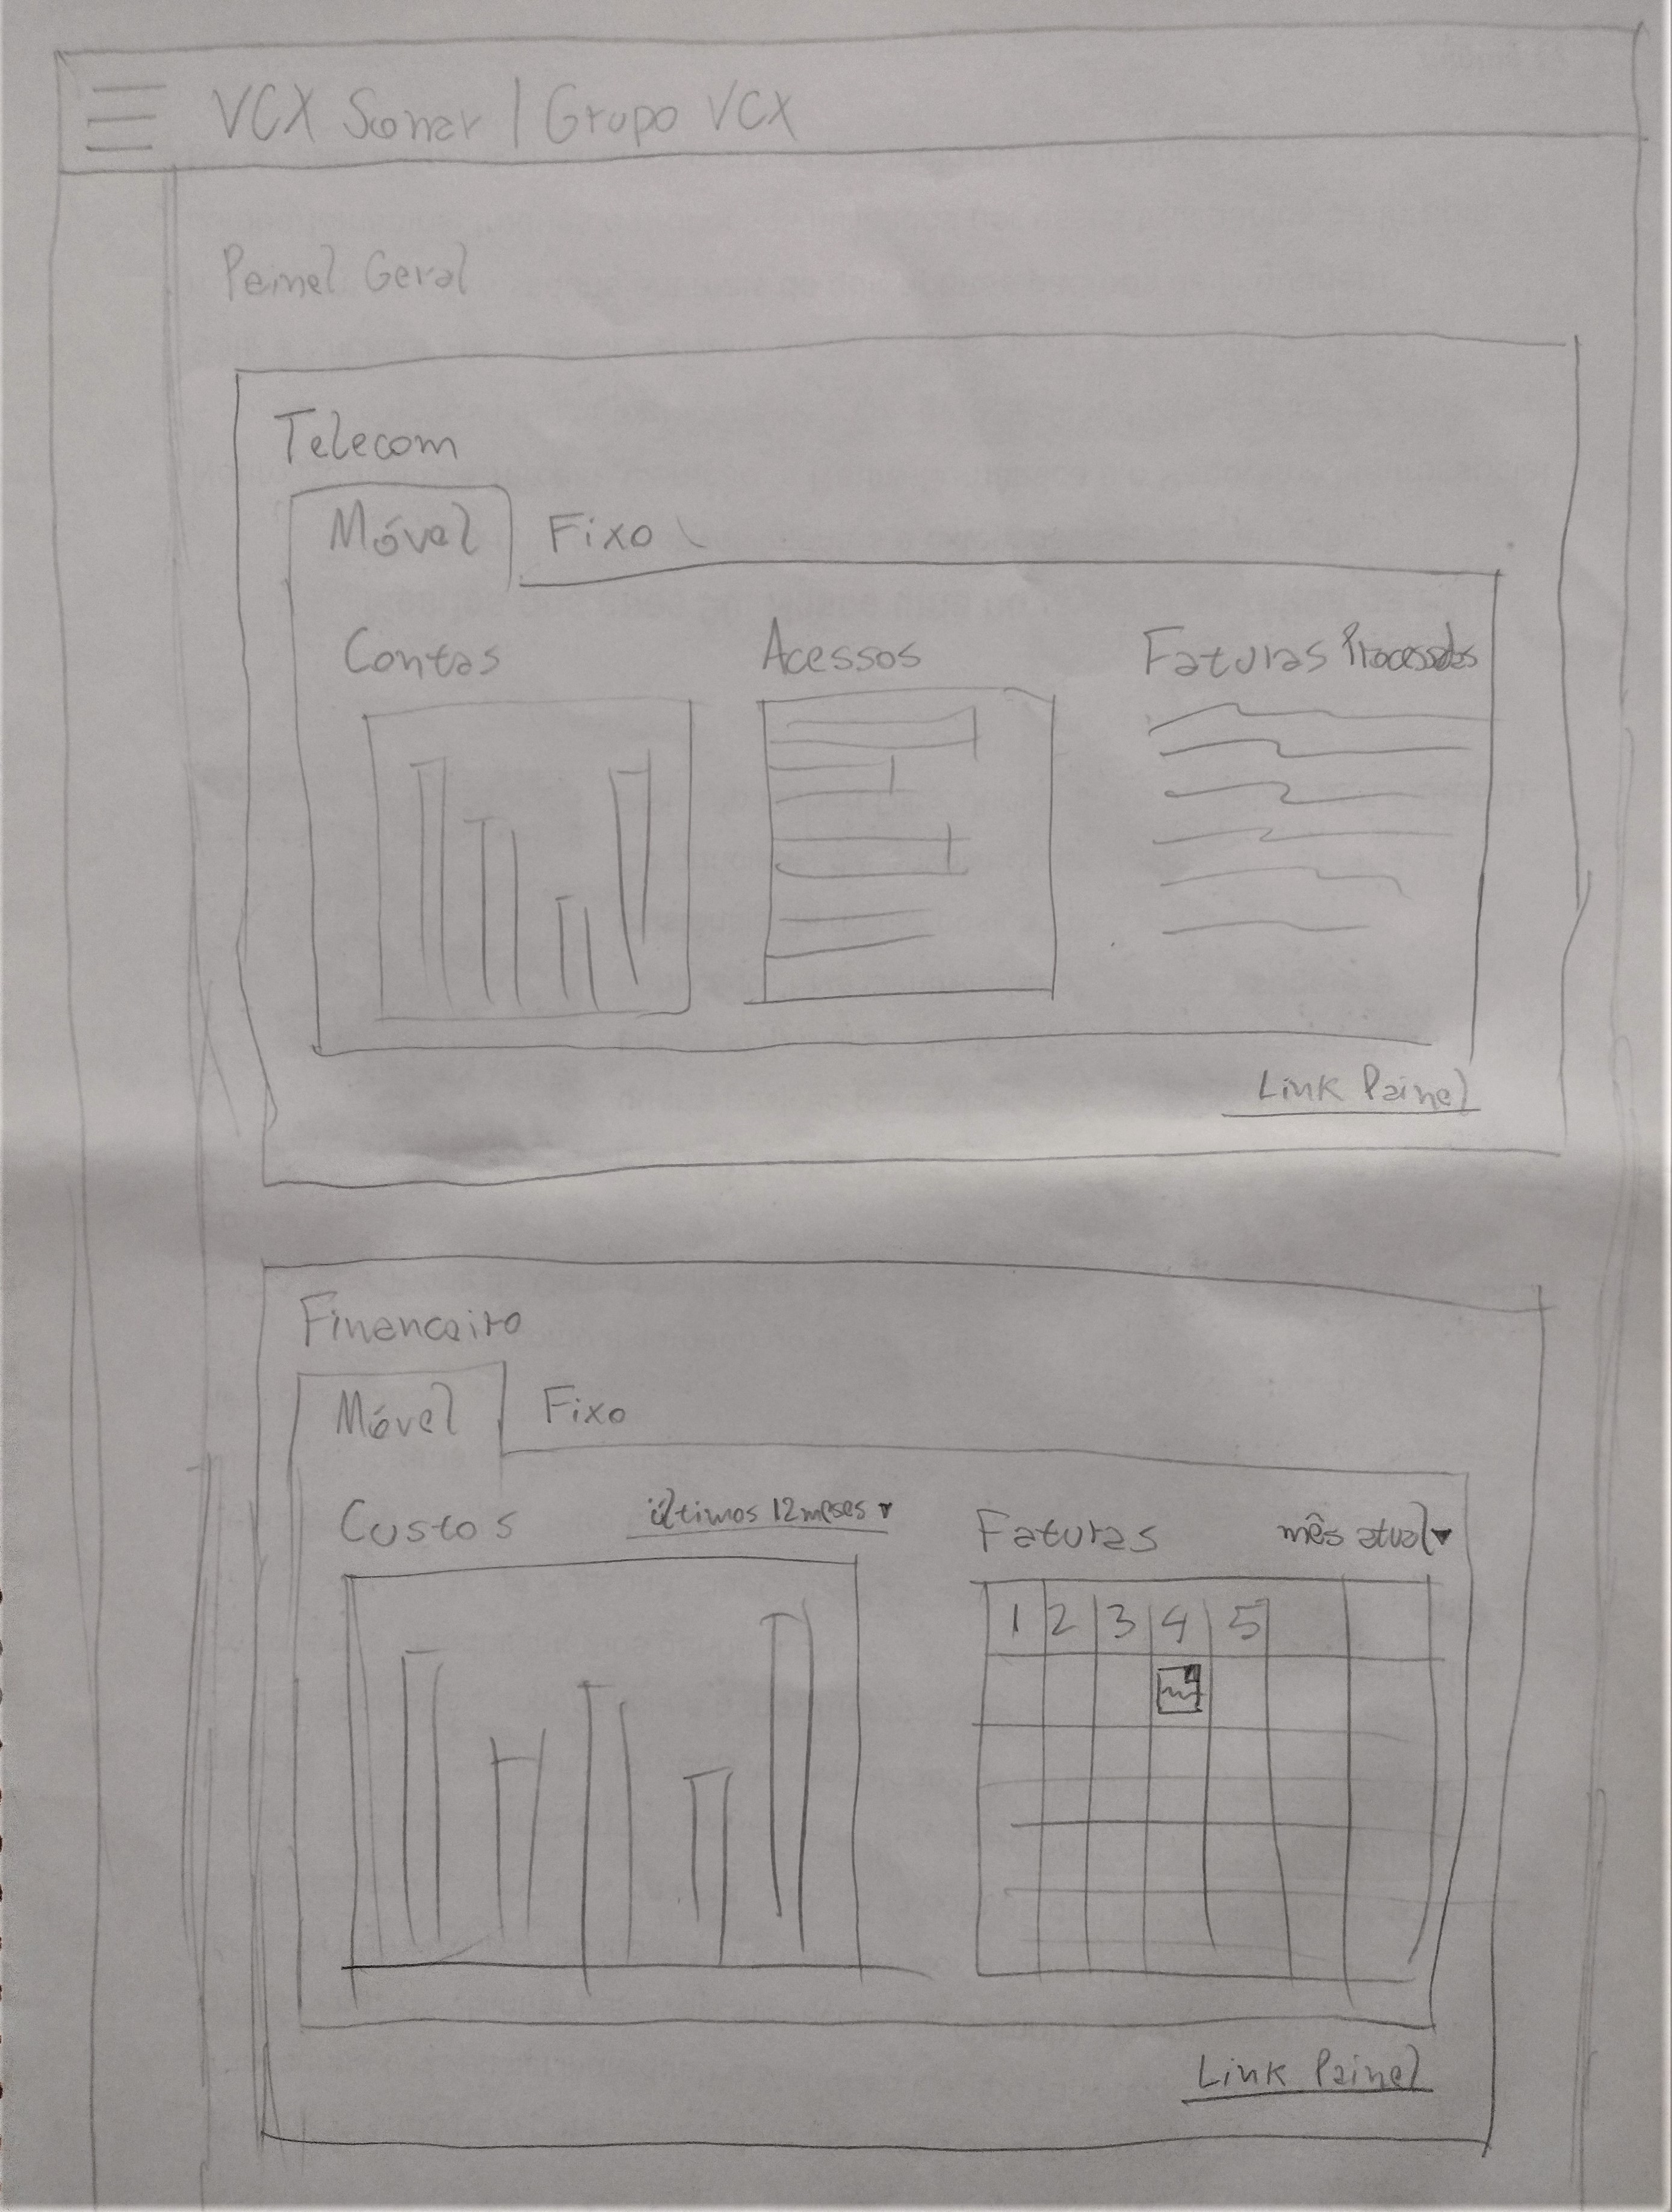 VCX Sonar | Grupo VCX
Painel Geral
Telecom
Móvel Fixo
Contas Acessos Faturas Processadas
Link Painel
Financeiro
Móvel Fixo
Custos últimos 12 meses ▾ Faturas mês atual ▾
1 2 3 4 5
Link Painel